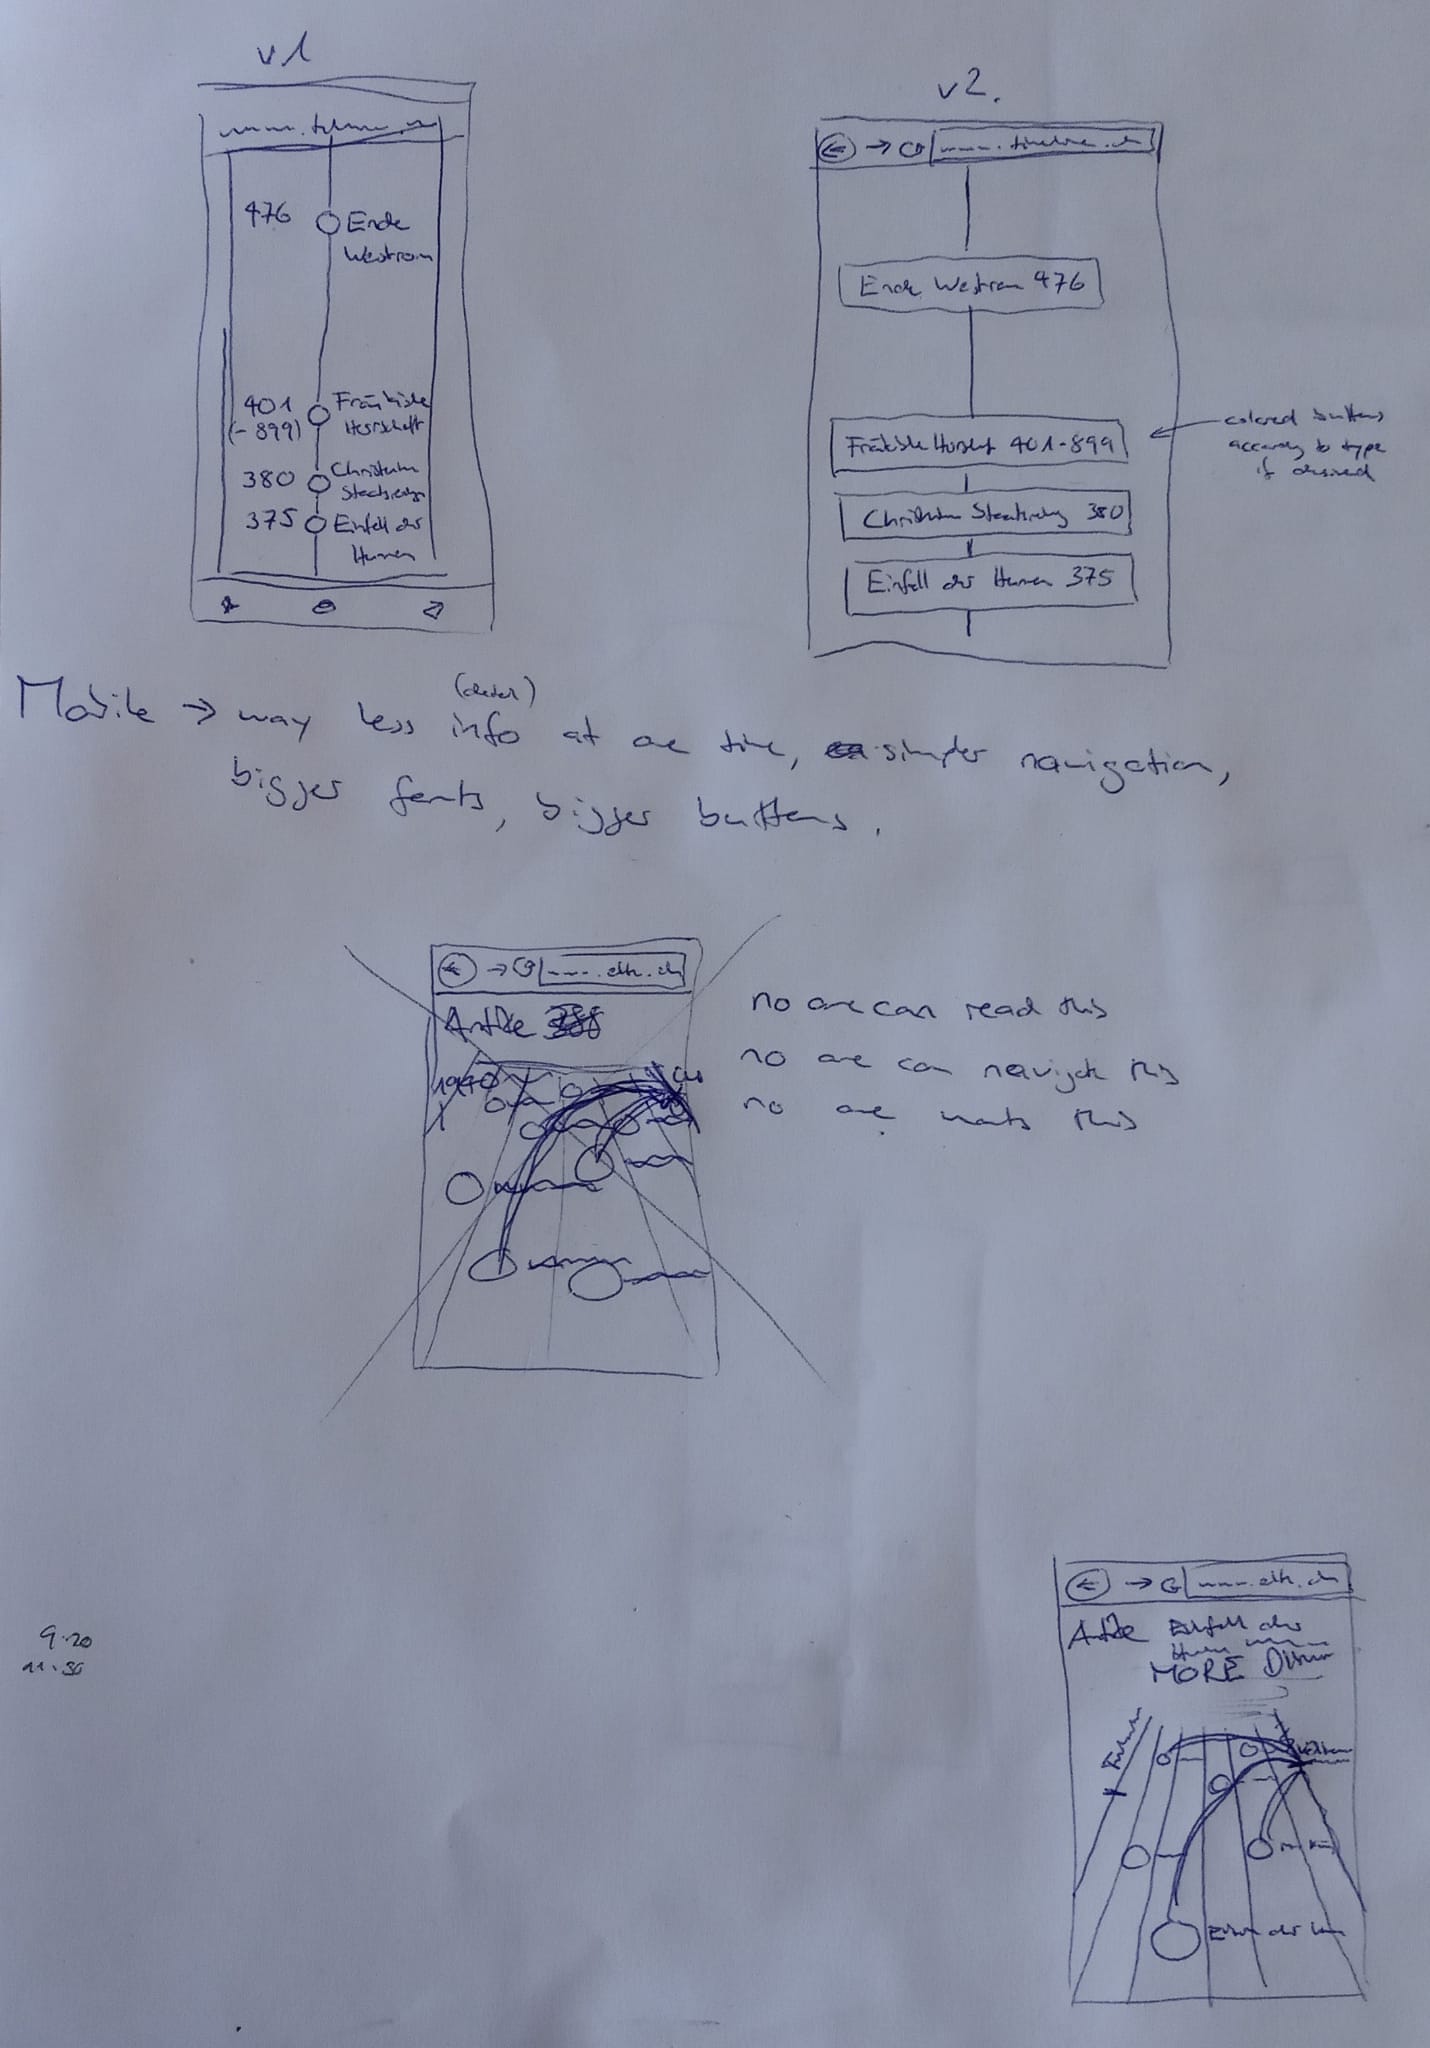 v1
476
Ende
Westrom
401
(-899)
Fränkische
Herrschaft
380
Christentum
375
Einfall der
Hunnen
v2.
www.timeline.ch
Ende Westrom 476
Fränkische Herrschaft 401-899
colored buttons
according to type
if desired
Christentum 380
Einfall der Hunnen 375
Mobile → way less info at one time, simpler navigation,
bigger fonts, bigger buttons.
www.eth.ch
Antike
no one can read this
no one can navigate this
no one wants this
9.20
www.eth.ch
Antike Einfall der
MORE